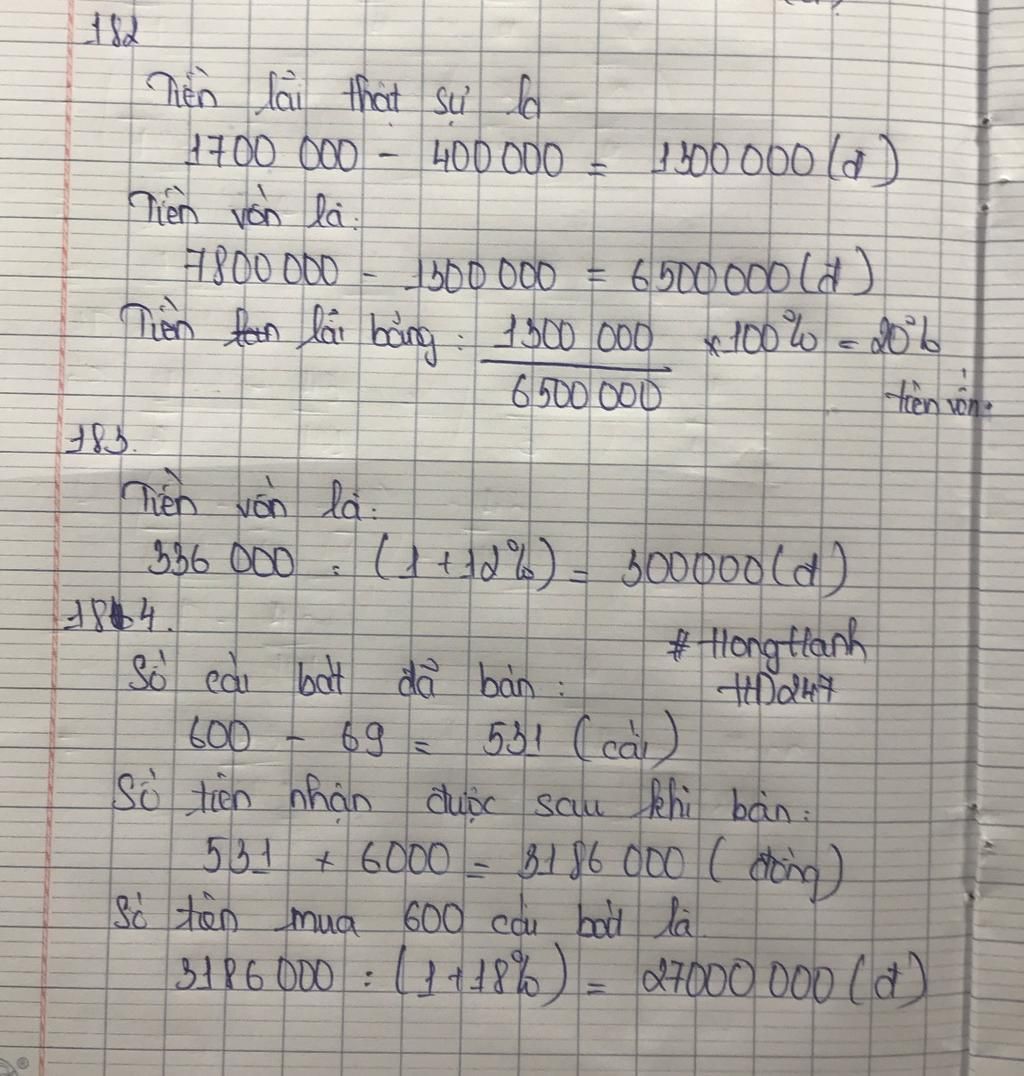 182
Tiền lãi thật sự là
1700 000 - 400 000 = 1300 000 (đ)
Tiền vốn là:
7800 000 - 1300 000 = 6 500 000 (đ)
Tiền lãi bằng: 1300 000 / 6 500 000 x 100% = 20%
tiền vốn.
183.
Tiền vốn là:
336 000 : (1 + 12%) = 300 000 (đ)
184.
# HongHanh
Số cái bát đã bán:
HD247
600 - 69 = 531 (cái)
Số tiền nhận được sau khi bán:
531 x 6000 = 3186 000 (đồng)
Số tiền mua 600 cái bát là
3186 000 : (1 + 18%) = 27000 000 (đ)